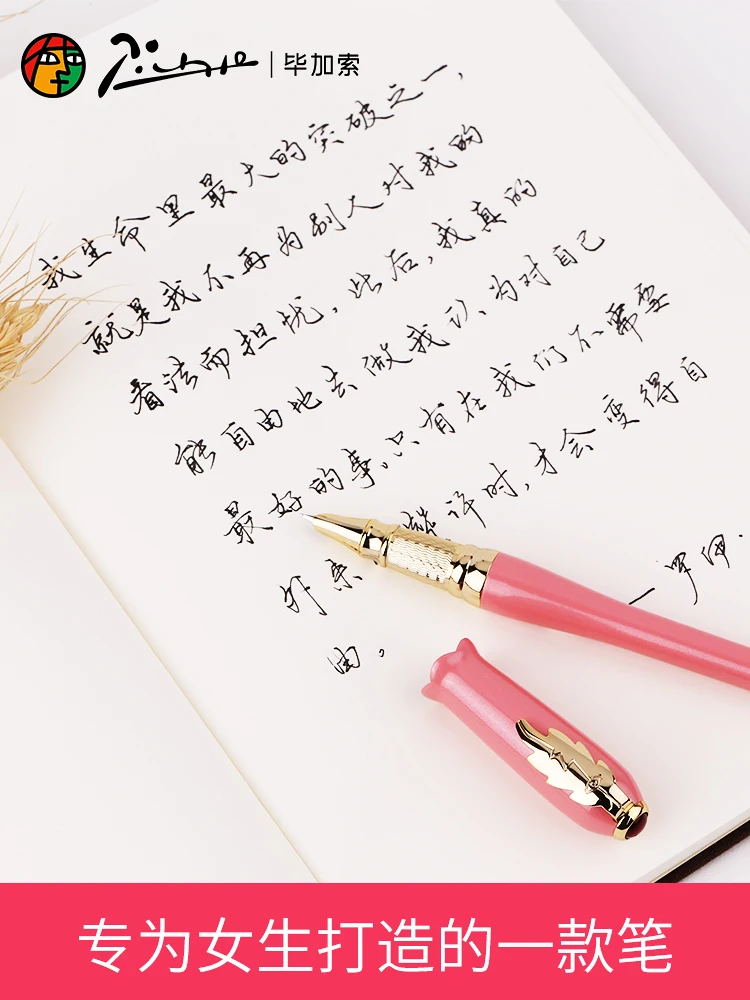 毕加索
我生命里最大的突破之一,
就是我不再为别人对我的
看法而担忧。此后,我真的
能自由地去做我认为对自己
最好的事。只有在我们不需要
外来 许时,才会变得自
由。
一罗伊.
专为女生打造的一款笔